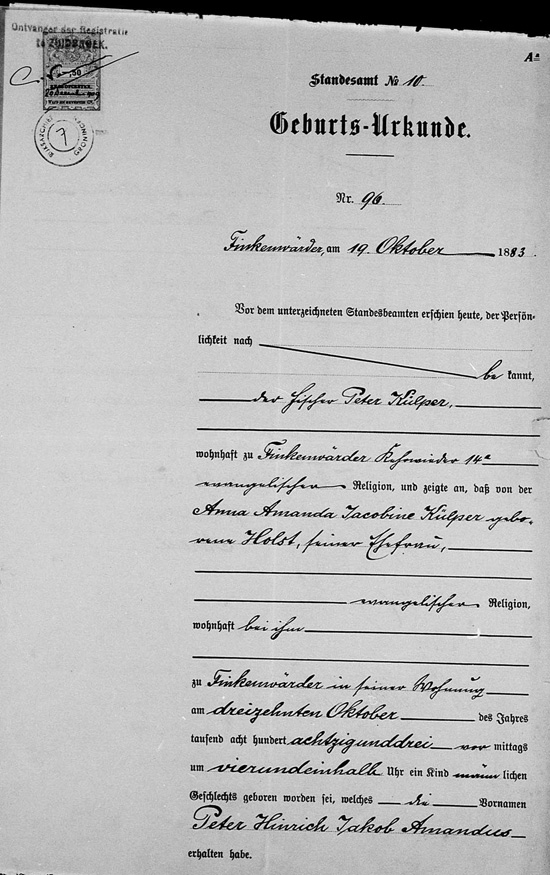 Ontvanger der Registratie
te ZUIDBROEK.
A a
Standesamt No 10.
Geburts-Urkunde.
7
Nr. 96.
Finkenwärder, am 19. Oktober 1883.
Vor dem unterzeichneten Standesbeamten erschien heute, der Persön-
lichkeit nach
be kannt,
der Fischer Peter Külper,
wohnhaft zu Finkenwärder Kehrwieder 14a
evangelischer Religion, und zeigte an, daß von der
Anna Amanda Jacobine Külper gebo-
rene Holst, seiner Ehefrau,
evangelischer Religion,
wohnhaft bei ihm
zu Finkenwärder in seiner Wohnung
am dreizehnten Oktober des Jahres
tausend acht hundert achtzigunddrei vor mittags
um vierundeinhalb Uhr ein Kind männ lichen
Geschlechts geboren worden sei, welches die Vornamen
Peter Hinrich Jakob Amandus
erhalten habe.